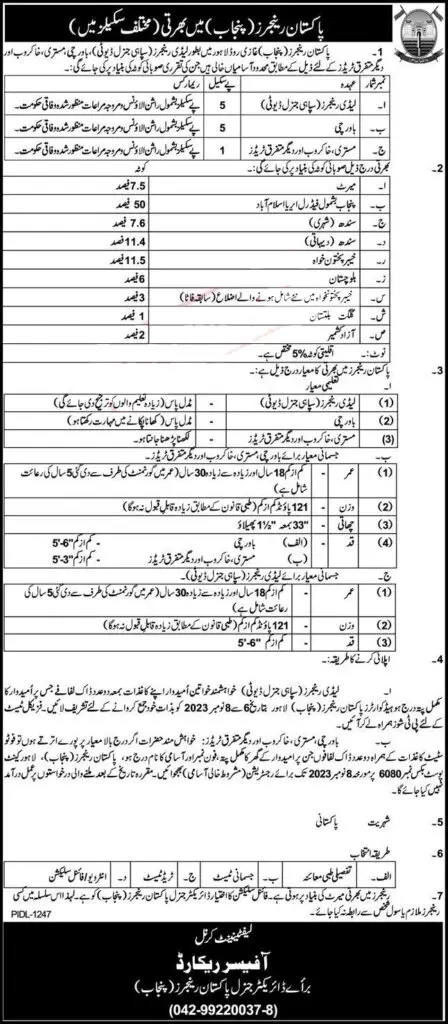 پاکستان رینجرز (پنجاب) میں بھرتی (مختلف سکیلز میں)
1 - پاکستان رینجرز (پنجاب) غازی روڈ لاہور میں بطور لیڈی رینجرز (سپاہی جنرل ڈیوٹی)، باورچی، مستری، خاکروب اور
دیگر متفرق ٹریڈز کے لئے ذیل کے مطابق محدود آسامیاں خالی ہیں جن کی تقرری صوبائی کوٹہ کی بنیاد پر کی جائے گی:۔
نمبر شمار عہدہ پے سکیل ریمارکس
ا۔ لیڈی رینجرز (سپاہی جنرل ڈیوٹی) 5 پے سکیل بشمول راشن الاؤنس و مروجہ مراعات منظور شدہ وفاقی حکومت۔
ب۔ باورچی 5 پے سکیل بشمول راشن الاؤنس و مروجہ مراعات منظور شدہ وفاقی حکومت۔
ج۔ مستری، خاکروب اور دیگر متفرق ٹریڈز 1 پے سکیل بشمول راشن الاؤنس و مروجہ مراعات منظور شدہ وفاقی حکومت۔
2 - بھرتی درج ذیل صوبائی کوٹہ کی بنیاد پر کی جائے گی:۔ کوٹہ
ا۔ میرٹ 7.5 فیصد
ب۔ پنجاب بشمول فیڈرل ایریا اسلام آباد 50 فیصد
ج۔ سندھ (شہری) 7.6 فیصد
د۔ سندھ (دیہاتی) 11.4 فیصد
ر۔ خیبر پختون خواہ 11.5 فیصد
ز۔ بلوچستان 6 فیصد
س۔ خیبر پختونخواہ میں نئے شامل ہونے والے اضلاع (سابقہ فاٹا) 3 فیصد
ش۔ گلگت بلتستان 1 فیصد
ص۔ آزاد کشمیر 2 فیصد
نوٹ:۔ اقلیتی کوٹہ 5% مختص ہے۔
3 - پاکستان رینجرز میں بھرتی کا معیار درج ذیل ہے:۔
ا۔ تعلیمی معیار
(1) لیڈی رینجرز (سپاہی جنرل ڈیوٹی) - مڈل پاس (زیادہ تعلیم والوں کو ترجیح دی جائے گی)
(2) باورچی - مڈل پاس (کھانا پکانے میں مہارت رکھتا ہو)
(3) مستری، خاکروب اور دیگر متفرق ٹریڈز - لکھنا پڑھنا جانتا ہو۔
ب۔ جسمانی معیار برائے باورچی، مستری، خاکروب اور دیگر متفرق ٹریڈز
(1) عمر - کم از کم 18 سال اور زیادہ سے زیادہ 30 سال (عمر میں گورنمنٹ کی طرف سے دی گئی 5 سال کی رعائت
شامل ہے)
(2) وزن - 121 پاؤنڈ کم از کم (طبی قانون کے مطابق زیادہ قابل قبول نہ ہوگا)
(3) چھاتی - 33" بمعہ 1½" پھیلاؤ
(4) قد - (الف) باورچی - کم از کم 5'-6"
(ب) مستری، خاکروب اور دیگر متفرق ٹریڈز - کم از کم 5'-3"
ج۔ جسمانی معیار برائے لیڈی رینجرز (سپاہی جنرل ڈیوٹی)
(1) عمر - کم از کم 18 سال اور زیادہ سے زیادہ 30 سال (عمر میں گورنمنٹ کی طرف سے دی گئی 5 سال کی
رعائت شامل ہے)
(2) وزن - 121 پاؤنڈ کم از کم (طبی قانون کے مطابق زیادہ قابل قبول نہ ہوگا)
(3) قد - کم از کم 5'-6"
4 - اپلائی کرنے کا طریقہ:۔
ا۔ لیڈی رینجرز (سپاہی جنرل ڈیوٹی) خواہشمند خواتین امیدوار اپنے کاغذات بمعہ دو عدد ڈاک لفافے جس پر امیدوار کا
مکمل پتہ درج ہو ہیڈکوارٹرز پاکستان رینجرز (پنجاب) لاہور بتاریخ 6 سے 8 نومبر 2023 کو بذات خود جمع کروانے کے لئے تشریف لائیں۔ فزیکل ٹیسٹ
کے لئے پی ٹی شوز ہمراہ لے کر آئیں۔
ب۔ باورچی، مستری، خاکروب اور دیگر متفرق ٹریڈز:۔ خواہش مند حضرات اگر درج بالا معیار پر پورے اترتے ہوں تو فوٹو
سٹیٹ کاغذات کے ہمراہ دو عدد ڈاک لفافوں جن پر امیدوار کے گھر کا مکمل پتہ، فون نمبر اور آسامی کا نام درج ہو، پاکستان رینجرز (پنجاب)، لاہور کینٹ
پوسٹ بکس نمبر 6080 پر مورخہ 8 نومبر 2023 تک برائے رجسٹریشن (مشروط خالی آسامی) بھجوائیں۔ مقررہ تاریخ کے بعد ملنے والی درخواستوں پر عمل درآمد
نہیں کیا جائے گا۔
5 - شہریت پاکستانی
6 - طریقہ انتخاب
الف۔ تفصیلی طبی معائنہ ب۔ جسمانی ٹیسٹ ج۔ ٹریڈ ٹیسٹ د۔ انٹرویو/فائنل سلیکشن
7 - رینجرز میں بھرتی میرٹ کی بنیاد پر ہوتی ہے۔ فائنل سلیکشن کا اختیار ڈائریکٹر جنرل پاکستان رینجرز (پنجاب) کو ہے۔ لہذا اس سلسلہ میں کسی
رینجرز ملازم یا سول شخص سے رابطہ نہ کیا جائے۔
PIDL-1247
لیفٹیننٹ کرنل
آفیسر ریکارڈ
برائے ڈائریکٹر جنرل پاکستان رینجرز (پنجاب)
(042-99220037-8)